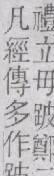 禮立毋跛鄭
凡經傳多作跛